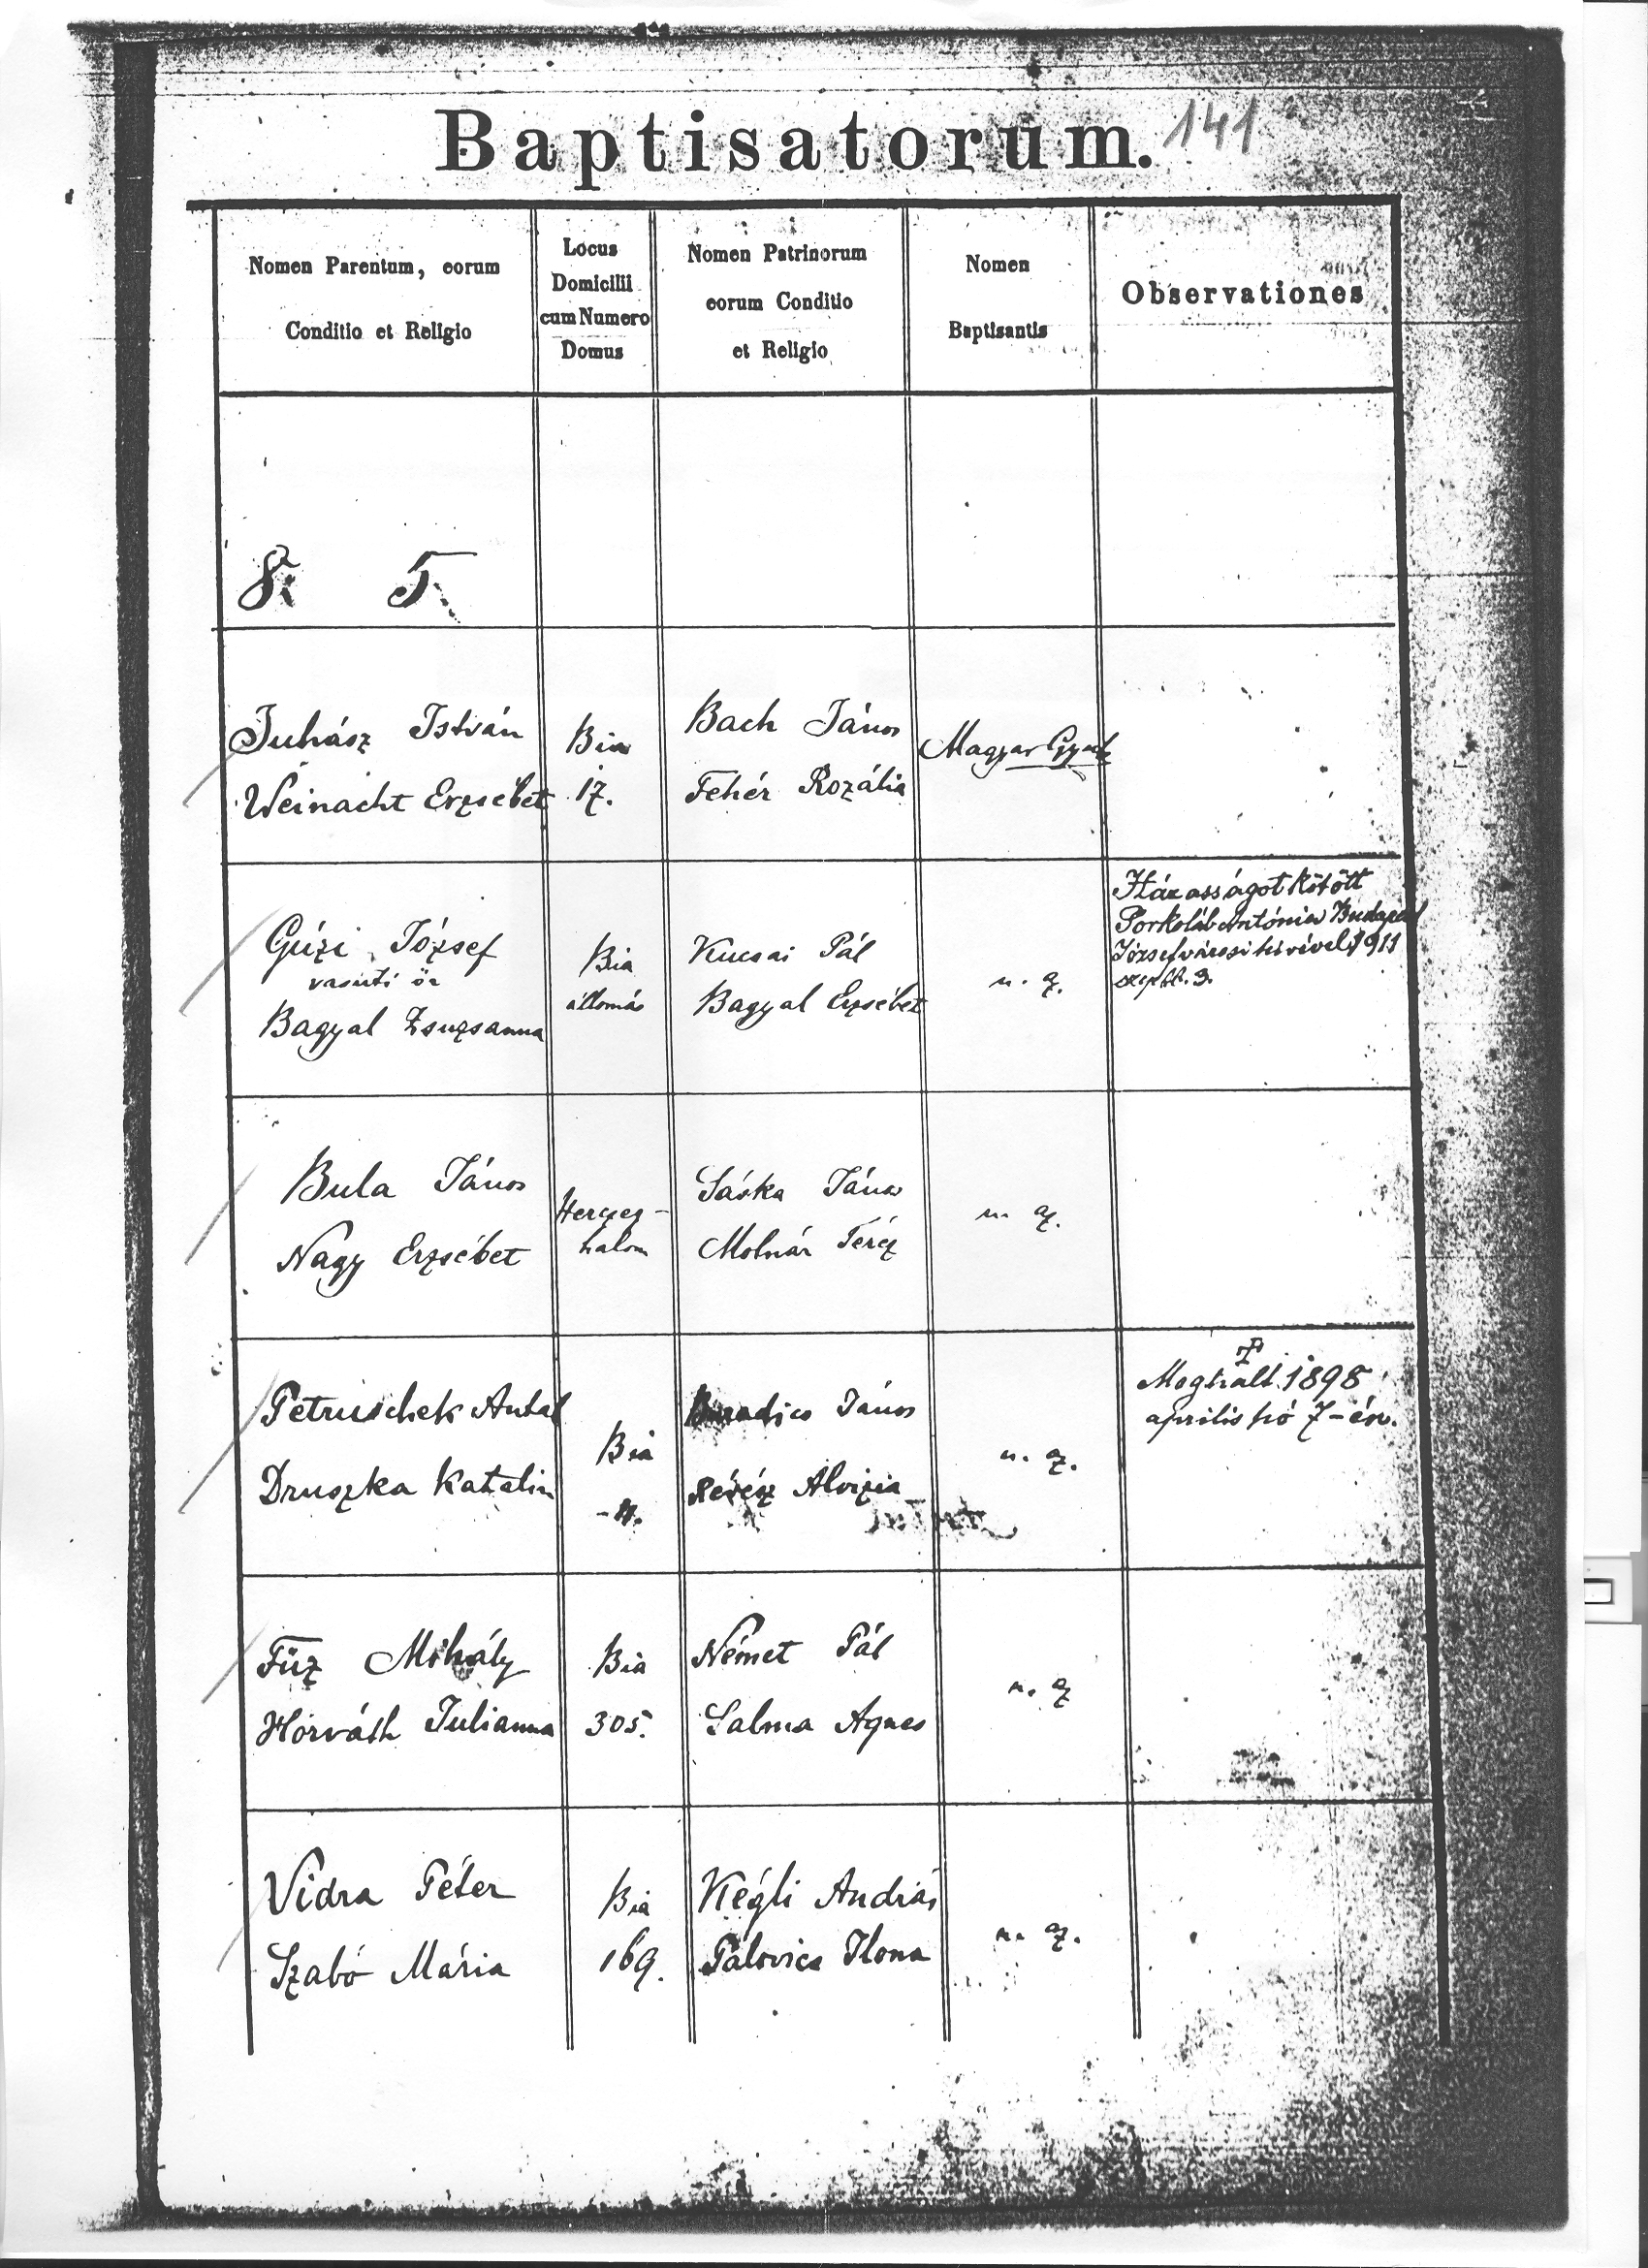 Baptisatorum. 141
Nomen Parentum, eorum
Conditio et Religio
Locus
Domicilii
cum Numero
Domus
Nomen Patrinorum
eorum Conditio
et Religio
Nomen
Baptisantis
Observationes
8. 5.
Juhász István
Weinacht Erzsébet
Bia
17.
Bach János
Fehér Rozália
Magyar
Gúzi József
vasúti őr
Bagyal Zsuzsanna
Bia
állomás
Kucsai Pál
Bagyal Erzsébet
u. q.
Házasságot kötött
Porkoláb Antónia Budapest
Józsefvárosi hívével 1911
szept. 3.
Bula János
Nagy Erzsébet
Herczeg-
halom
Sáska János
Molnár Teréz
u. q.
Petruschek Antal
Druszka Katalin
Bia
János
Alvizia
u. q.
Meghalt 1898
április hó 7-én.
Füz Mihály
Horváth Julianna
Bia
305.
Német Pál
Salma Agnes
u. q
Vidra Péter
Szabó Mária
Bia
169.
Kégli András
Pálovics Ilona
u. q.